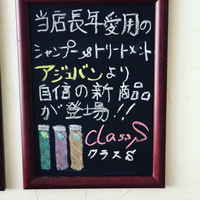 当店長年愛用の
シャンプー&トリートメント
アジュバンより
自信の新商品
が登場!!
classS
クラスS